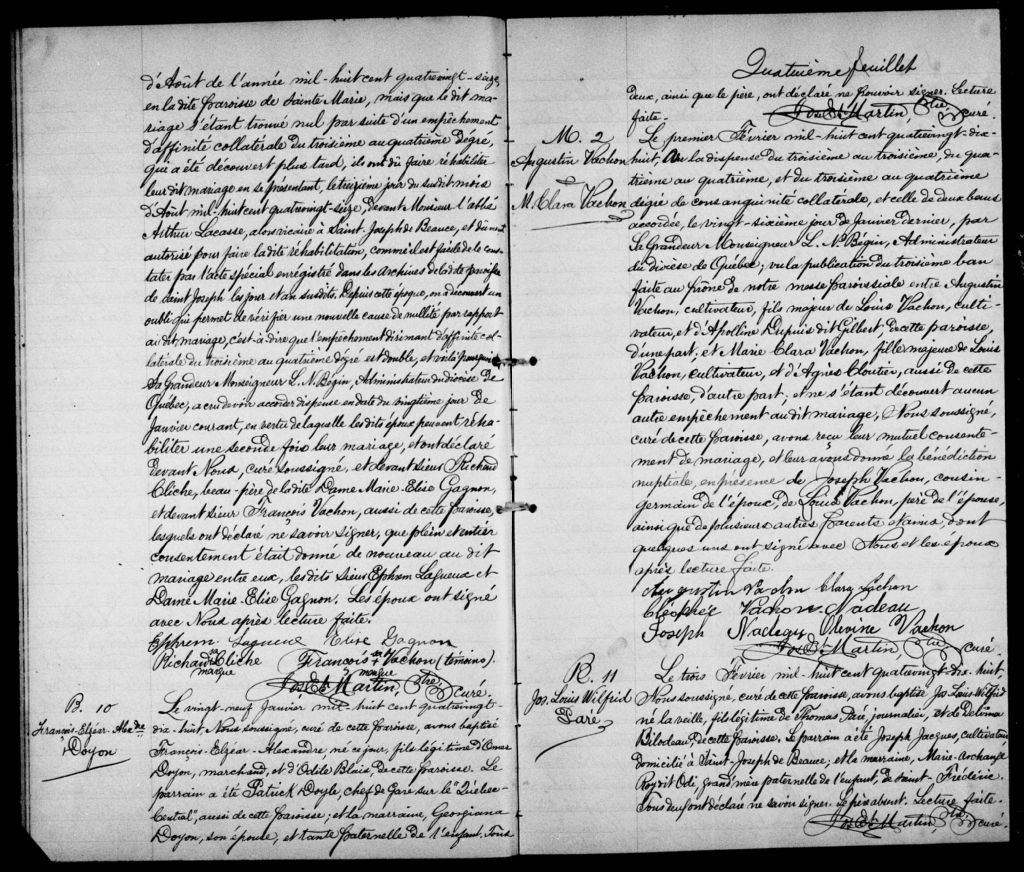 d'Août de l'année mil-huit cent quatrevingt-seize,
en la dite paroisse de Sainte Marie, mais que le dit ma-
riage s'étant trouvé nul par suite d'un empêchement
d'affinité collatérale du troisième au quatrième dégré,
qui a été découvert plus tard, ils ont dû faire réhabiliter
leur dit mariage en se présentant, le treizième jour du susdit mois
d'Août mil-huit cent quatrevingt-seize, devant Monsieur l'abbé
Arthur Lacasse, alors vicaire à Saint-Joseph de Beauce, et dûment
autorisé pour faire la dite réhabilitation, comme il est facile de le cons-
tater par l'acte spécial enrégistré dans les archives de la dite paroisse
de Saint Joseph les jour et an susdits. Depuis cette époque, on a découvert un
oubli qui permet de vérifier une nouvelle cause de nullité par rapport
au dit mariage, c'est-à-dire que l'empêchement dirimant d'affinité col-
latérale du troisième au quatrième dégré est double, et voilà pourquoi
Sa Grandeur Monseigneur L. N. Bégin, Administrateur du diocèse de
Québec, a cru devoir accorder dispense en date du vingtième jour de
Janvier courant, en vertu de laquelle les dits époux peuvent réha-
biliter une seconde fois leur mariage, et ont déclaré
devant Nous, curé soussigné, et devant sieur Richard
Cliche, beau-père de la dite Dame Marie-Elise Gagnon,
et devant sieur François Vachon, aussi de cette paroisse,
lesquels ont déclaré ne savoir signer, que plein et entier
consentement était donné de nouveau au dit
mariage entre eux, les dits sieur Ephrem Lagueux et
Dame Marie-Elise Gagnon. Les époux ont signé
avec Nous après lecture faite.
Ephrem Lagueux Elise Gagnon
Richard sa + marque Cliche François sa + marque Vachon (témoins).
Jos. Et. Martin, Ptre curé.
B. 10
François-Elzéar-Alexdre
Doyon
Le vingt-neuf Janvier mil-huit cent quatrevingt-
dix-huit Nous soussigné, curé de cette paroisse, avons baptisé
François-Elzéar-Alexandre, né ce jour, fils légitime d'Omer
Doyon, marchand, et d'Odile Blais, de cette paroisse. Le
parrain a été Patrick Doyle, chef de gare sur le Québec-
Central, aussi de cette paroisse; et la marraine, Georgiana
Doyon, son épouse, et tante paternelle de l'enfant. Tous
Quatrième feuillet
deux, ainsi que le père, ont déclaré ne pouvoir signer. Lecture
faite. Jos. Et. Martin, Ptre curé.
M. 2
Augustin Vachon
&
M. Clara Vachon
Le premier Février mil-huit cent quatrevingt-dix-
huit, Vu la dispense du troisième au troisième, du qua-
trième au quatrième, et du troisième au quatrième
dégré de consanguinité collatérale, et celle de deux bans
accordée, le vingt-sixième jour de Janvier dernier, par
Sa Grandeur Monseigneur L. N. Bégin, Administrateur
du diocèse de Québec; vu la publication du troisième ban
faite au prône de notre messe paroissiale entre Augustin
Vachon, cultivateur, fils majeur de Louis Vachon, culti-
vateur, et d'Apolline Dupuis dit Gilbert, de cette paroisse,
d'une part; et Marie Clara Vachon, fille majeure de Louis
Vachon, cultivateur, et d'Agnès Cloutier, aussi de cette
paroisse, d'autre part; et ne s'étant découvert aucun
autre empêchement au dit mariage, Nous soussigné,
curé de cette paroisse, avons reçu leur mutuel consente-
ment de mariage, et leur avons donné la bénédiction
nuptiale, en présence de Joseph Vachon, cousin-
germain de l'époux, de Louis Vachon, père de l'épouse,
ainsi que de plusieurs autres parents et amis, dont
quelques uns ont signé avec Nous et les époux
après lecture faite.
Augustin Vachon Clara Vachon
Cléophée Vachon Nadeau
Joseph Olivine Vachon
Jos. Et. Martin, Ptre curé.
B. 11
Jos. Louis Wilfrid
Paré
Le trois Février mil-huit cent quatrevingt-dix-huit,
Nous soussigné, curé de cette paroisse, avons baptisé Jos. Louis Wilfrid
né la veille, fils légitime de Thomas Paré, journalier, et de Délima
Bilodeau, de cette paroisse. Le parrain a été Joseph Jacques, cultivateur
domicilié à Saint-Joseph de Beauce, et la marraine, Marie-Archange
grand'mère paternelle de l'enfant, de Saint-Frédéric.
Tous deux ont déclaré ne savoir signer. Le père absent. Lecture faite.
Jos. Et. Martin, Ptre curé.